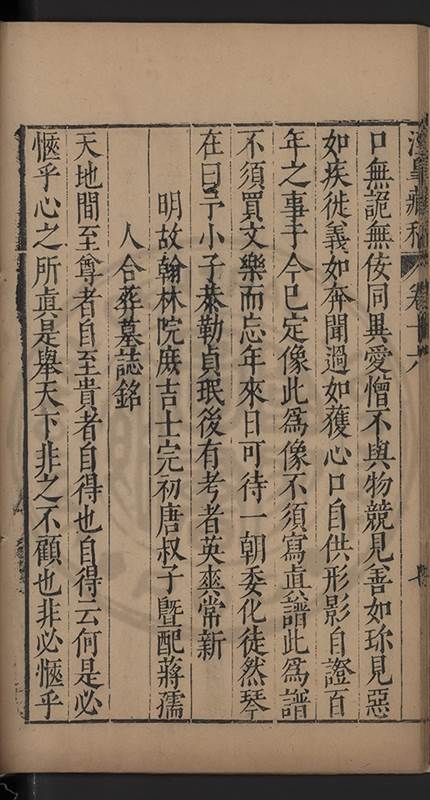 涇臯藏稿 卷十六
口無詭無佞同異愛憎不與物競見善如珍見惡
如疾徙義如奔聞過如獲心口自供形影自證百
年之事于今已定像此爲像不須寫眞譜此爲譜
不須買文樂而忘年來日可待一朝委化徒然琴
在曰予小子恭勒貞珉後有考者英爽常新
明故翰林院庶吉士完初唐叔子曁配蔣孺
人合葬墓誌銘
天地間至尊者自至貴者自得也自得云何是必
愜乎心之所眞是舉天下非之不顧也非必愜乎